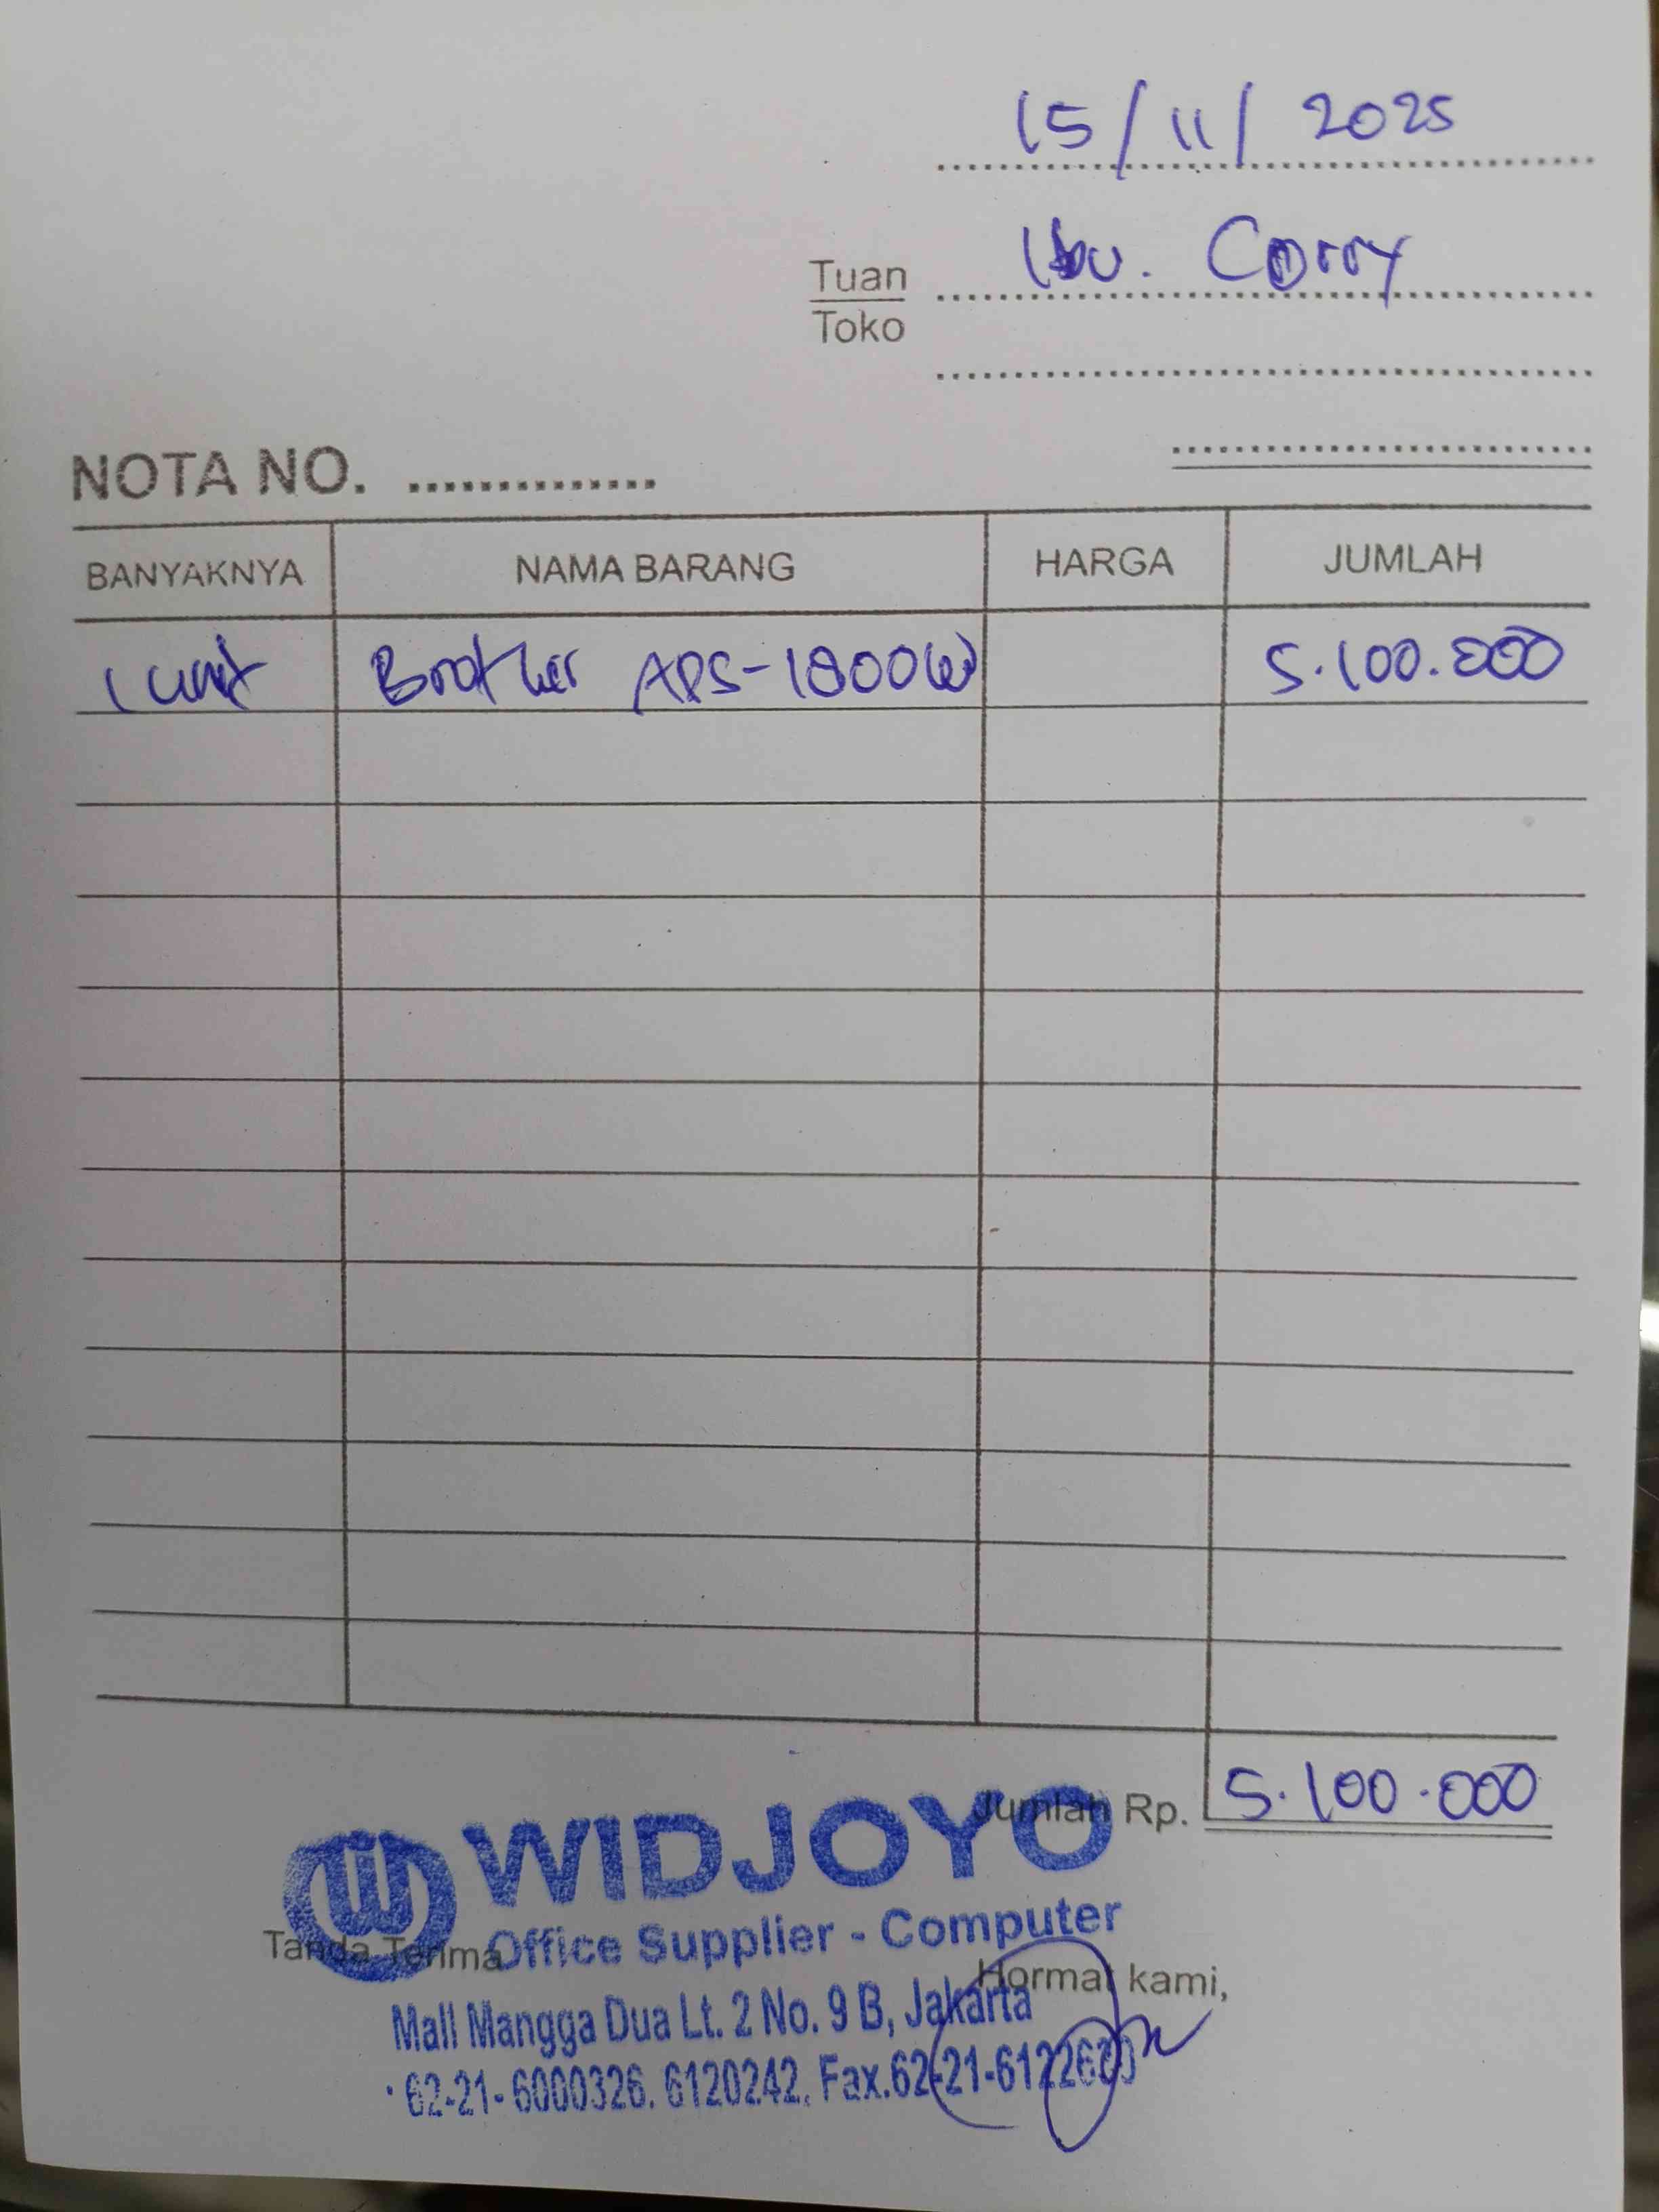 15/11/2025
Tuan Ibu. Corry
Toko
NOTA NO. ..............
BANYAKNYA NAMA BARANG HARGA JUMLAH
1 unit Brother ADS-1800W 5.100.000
Jumlah Rp. 5.100.000
WIDJOYO
Office Supplier - Computer
Tanda Terima
Hormat kami,
Mall Mangga Dua Lt. 2 No. 9 B, Jakarta
62-21-6000326. 6120242. Fax.62-21-